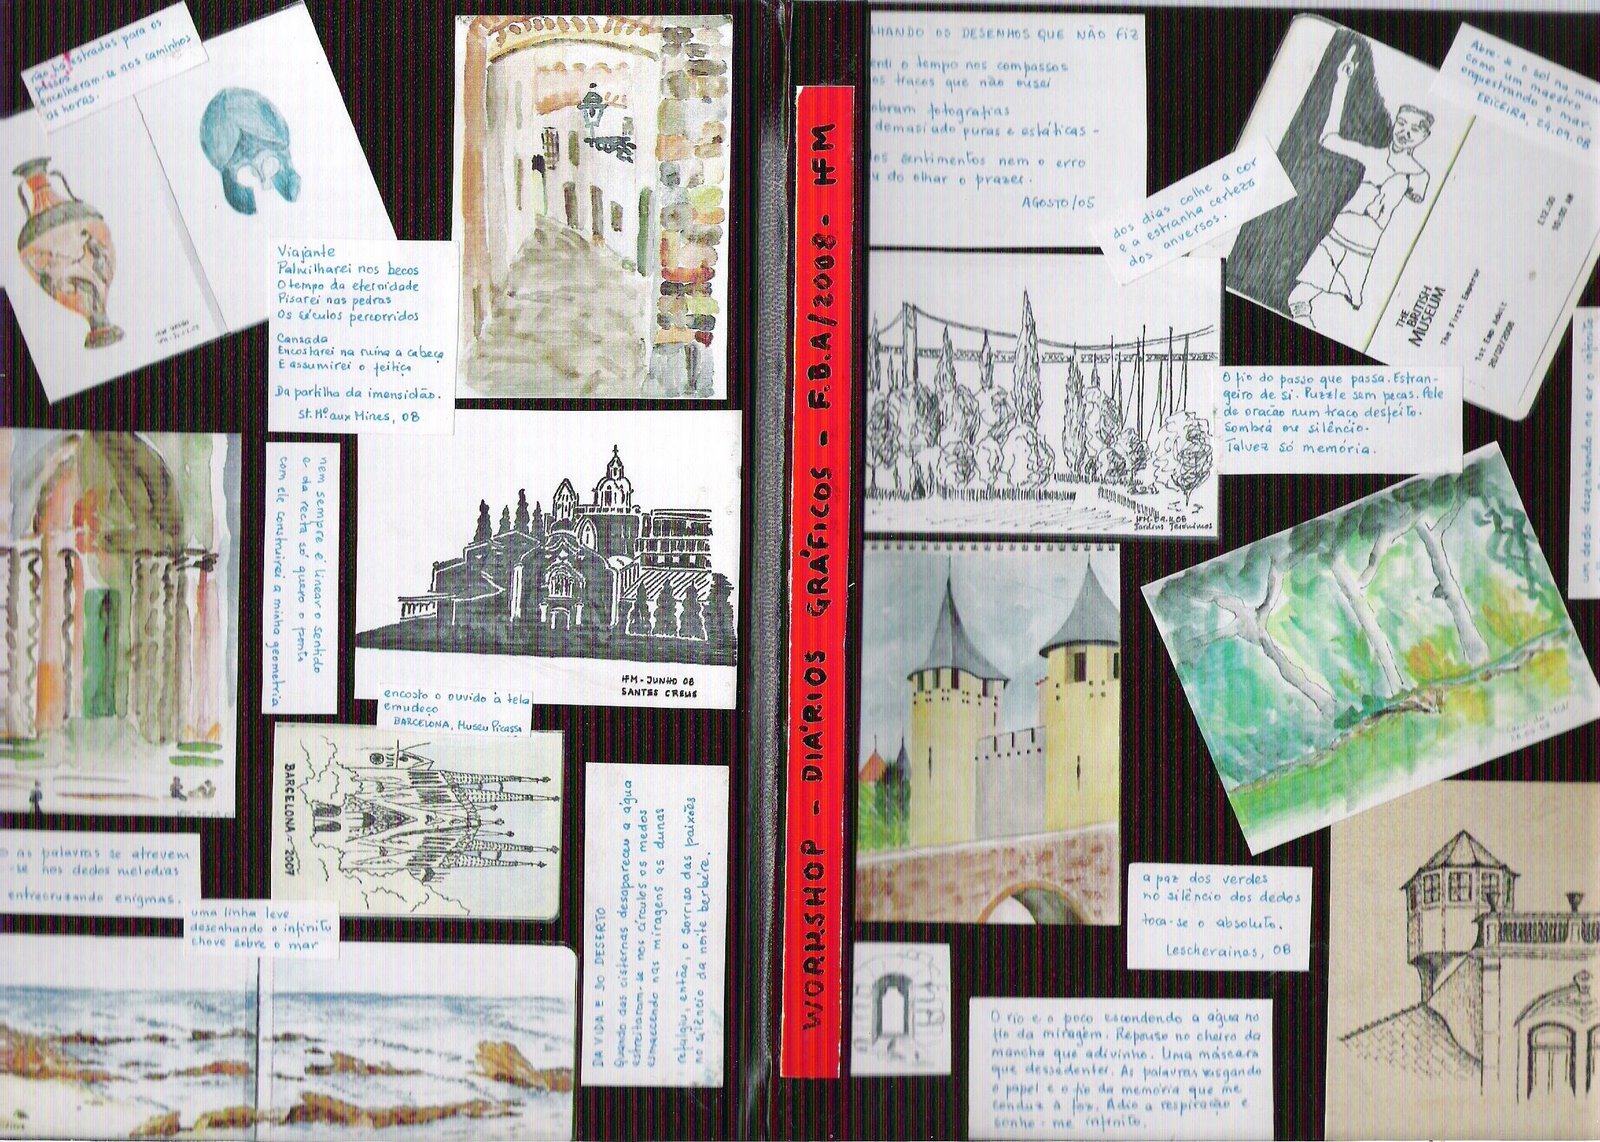 não há estradas para os
passos
encolheram-se nos caminhos
as horas.
Viajante
Palmilharei nos becos
O tempo da eternidade
Pisarei nas pedras
Os séculos percorridos
Cansada
Encostarei na ruína a cabeça
E assumirei o feitiço
Da partilha da imensidão.
St. Mª aux Mines, 08
nem sempre é linear o sentido
e da recta só quero o ponto
com ele construirei a minha geometria
HM-JUNHO 08
SANTES CREUS
encosto o ouvido à tela
emudeço
BARCELONA, Museu Picasso
BARCELONA 2007
o as palavras se atrevem
-se nos dedos melodias
entrecruzando enigmas.
uma linha leve
desenhando o infinito
chove sobre o mar
DA VIDA E DO DESERTO
Quando das cisternas desapareceu a água
estreitaram-se nos círculos os medos
esmaecendo nas miragens as dunas
refulgiu, então, o sorriso das paixões
no silêncio da noite berbére.
WORKSHOP - DIÁRIOS GRÁFICOS - F.B.A/2008 - HFM
LHANDO OS DESENHOS QUE NÃO FIZ
endi o tempo nos compassos
os traços que não ousei
obram fotografias
demasiado puras e estáticas -
os sentimentos nem o erro
u do olhar o prazer.
AGOSTO/05
dos dias colhe a cor
e a estranha certeza
dos anversos.
Abre-se o sol na man
como um maestro
orquestrando o mar.
ERICEIRA, 24.09.08
£12.00
THE
BRITISH
MUSEUM
The First Emperor
1st Emp Adult
20/02/2008
HM-04.11.08
Jardins Jerónimos
O fio do passo que passa. Estran-
geiro de si. Puzzle sem peças. Pele
de oração num traço desfeito.
Sombra ou silêncio.
Talvez só memória.
um dedo desenhando no ar o silêncio
a paz dos verdes
no silêncio dos dedos
toca-se o absoluto.
Lescheraines, 08
O rio e o poço escondendo a água no
fio da miragem. Repouso no cheiro da
mancha que adivinho. Uma máscara
que dessedentei. As palavras rasgando
o papel e o fio da memória que me
conduz à foz. Adio a respiração e
sonho-me infinito.